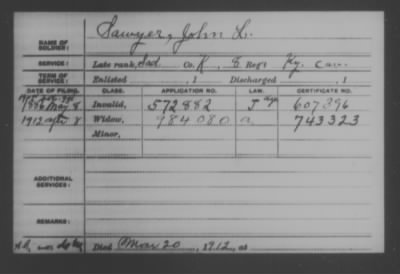 NAME OF SOLDIER: Sawyer, John L.
SERVICE: Late rank, Sad Co. K, 8 Reg't Ky. Cav.
TERM OF SERVICE: Enlisted , 1 Discharged , 1
DATE OF FILING. CLASS. APPLICATION NO. LAW. CERTIFICATE NO.
1886 May 8 Invalid, 572882 J 607396
1912 8 Widow, 984080 a. 743323
Minor,
ADDITIONAL SERVICES:
REMARKS:
Died Mar 20, 1912, at